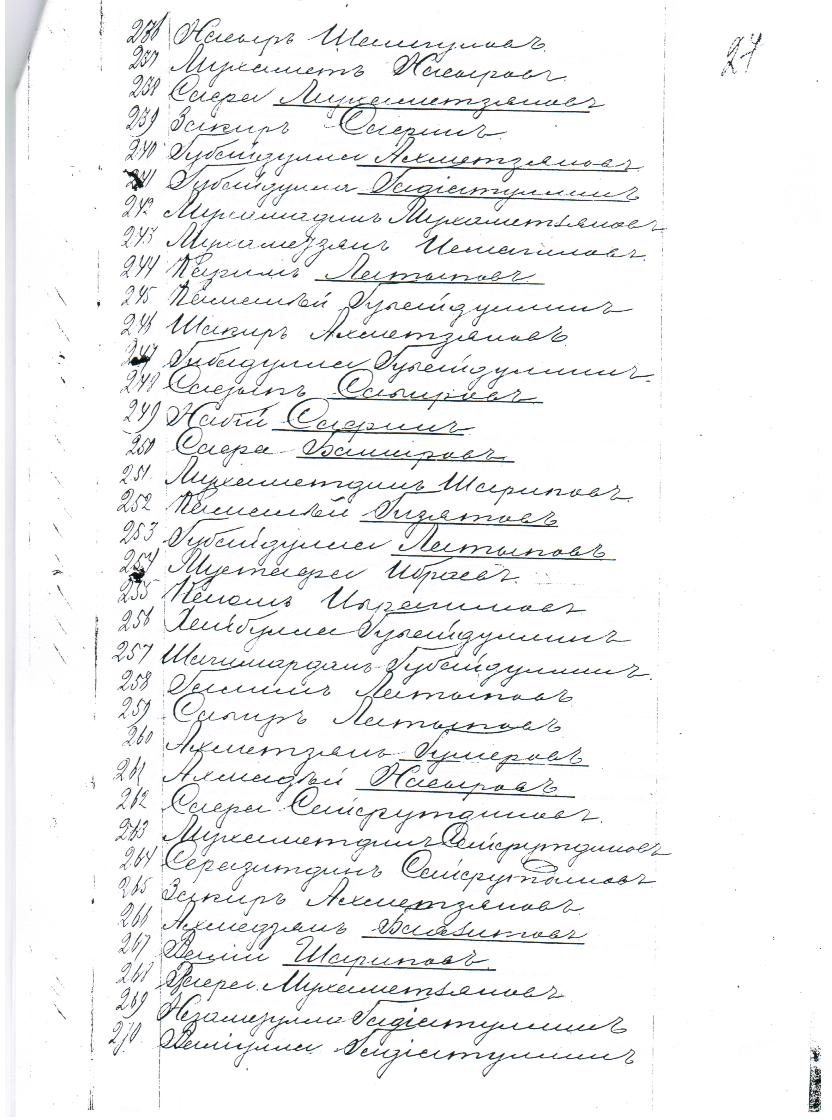 27
236 Насыръ Шамгуловъ
237 Мухаметъ Насыровъ
238 Сафа Мухаметзяновъ
239 Закиръ Сафинъ
240 Губайдулла Ахметзяновъ
241 Губайдулла Гидіатуллинъ
242 Мухаммадинъ Мухаметзяновъ
243 Мухамедзянъ Исмагиловъ
244 Каримъ Латыповъ
245 Губайдуллинъ
246 Шакиръ Ахметзяновъ
247 Гибадулла Губайдуллинъ
248 Садыкъ Сабировъ
249 Набій Сафинъ
250 Сафа Башировъ
251 Мухаметдинъ Шариповъ
252 Гизятовъ
253 Губайдулла Латыповъ
254 Мустафа Ибраевъ
255
256 Хайбулла Губайдуллинъ
257 Шагимарданъ Губайдуллинъ
258 Галимъ Латыповъ
259 Сабиръ Латыповъ
260 Ахметзянъ Гумеровъ
261 Ахмадѣй Насыровъ
262 Сафа Сайфутдиновъ
263 Мухаметдинъ Сайфутдиновъ
264 Серазитдинъ Сайфутдиновъ
265 Закиръ Ахметзяновъ
266 Ахмедзянъ Баязитовъ
267 Валій Шариповъ
268 Мухаметзяновъ
269 Низамулла Гидіатуллинъ
270 Валіулла Гидіатуллинъ